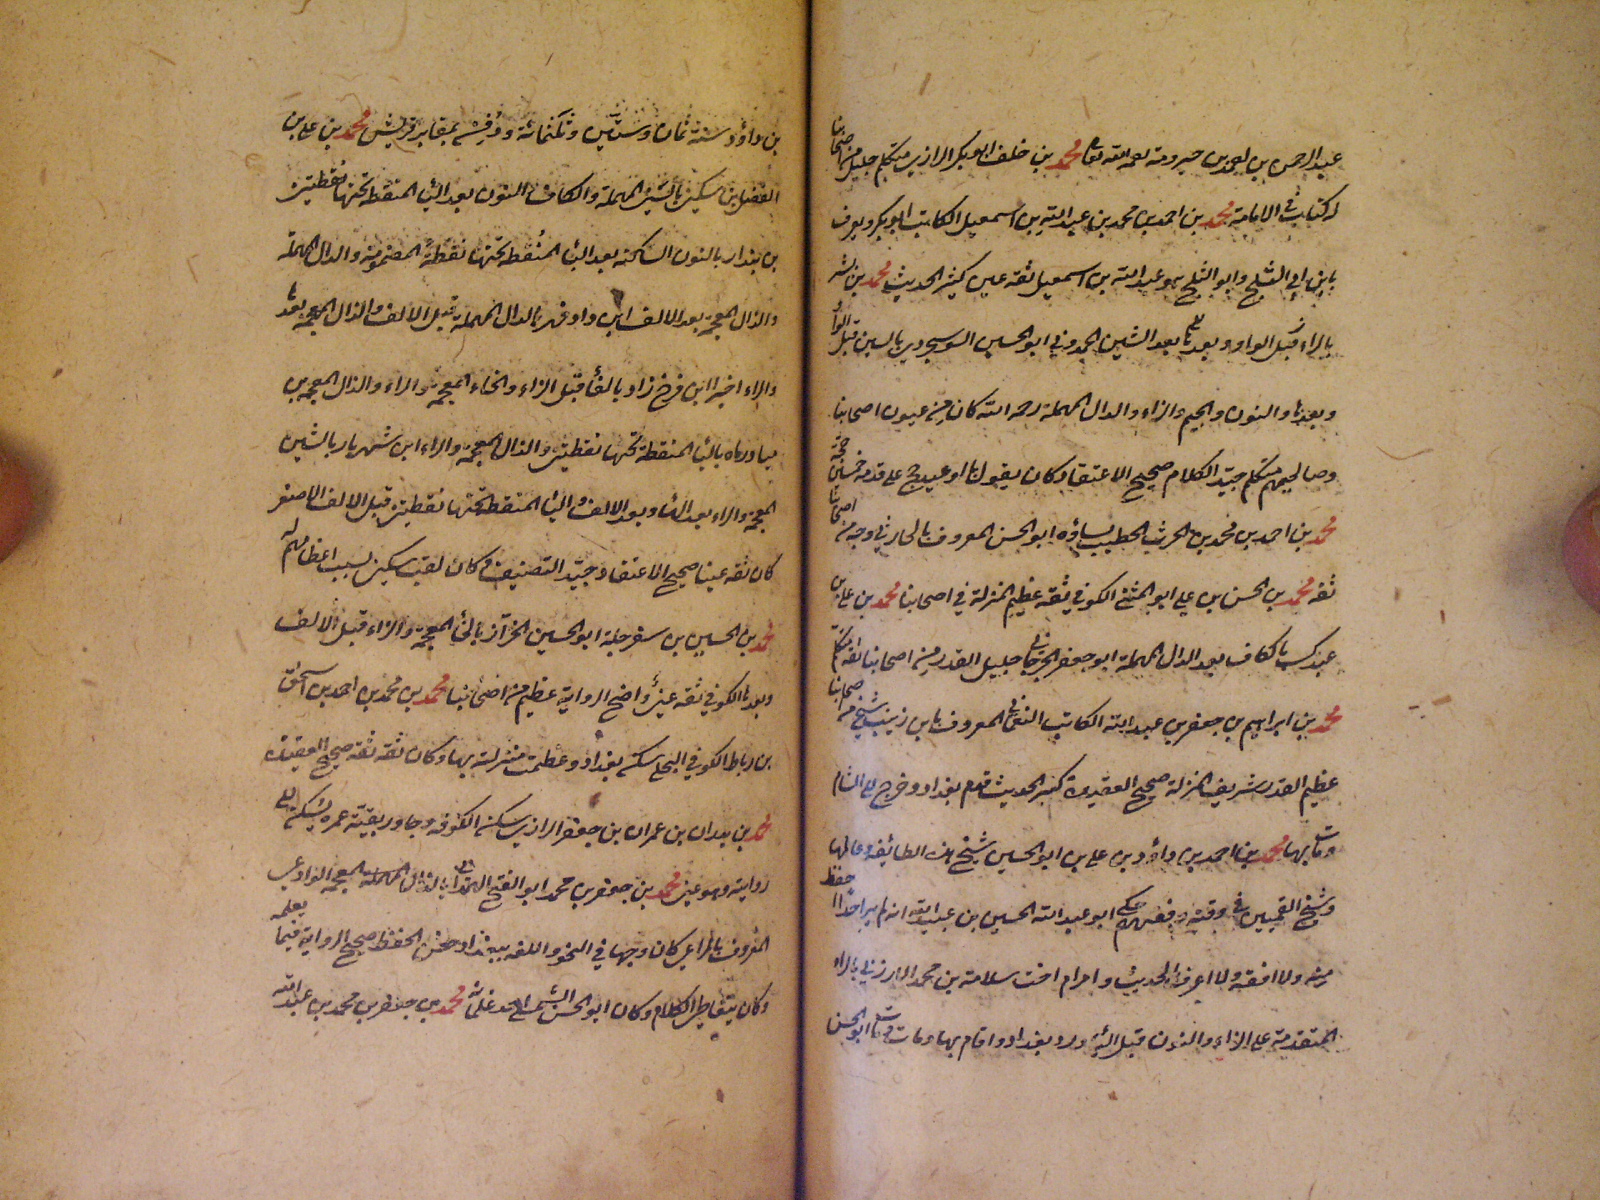 عبد الرحمن بن احمد بن جبرويه رحمه الله تعالى محمد بن خلف ابو بكر الرازي متكلم جليل من اصحابنا
له كتاب في الامامة محمد بن احمد بن محمد بن عبد الله بن اسمعيل الكاتب ابو بكر ويعرف
بابن ابي الثلج وابو الثلج هو عبد الله بن اسمعيل ثقة عين كثير الحديث محمد بن بشر
بالراء قبل الواو وبعدها بعد الشين الحمدوني ابو الحسين السوسنجردي بالسين قبل الواو
وبعدها والنون والجيم والراء والدال المهملة رحمه الله كان من عيون اصحابنا
وصالحيهم متكلم جيد الكلام صحيح الاعتقاد وكان يقول بالوعيد حج على قدميه خمسين حجة
محمد بن احمد بن محمد بن الحرث الخطيب بساوه ابو الحسن المعروف بالحارثي وجه من اصحابنا
ثقه محمد بن الحسن بن علي ابو المثنى الكوفي ثقه عظيم المنزلة في اصحابنا محمد بن علي بن
عبدك بالكاف بعد الدال المهملة ابو جعفر الجرجاني جليل القدر من اصحابنا ثقه متكلم
محمد بن ابراهيم بن جعفر بن عبد الله الكاتب النعماني المعروف بابن زينب شيخ من اصحابنا
عظيم القدر شريف المنزلة صحيح العقيدة كثير الحديث قدم بغداد وخرج الى الشام
ومات بها محمد بن احمد بن داؤد بن علي بن ابو الحسين شيخ هذه الطائفه وعالمها
وشيخ القميين في وقته وفقيههم حكى ابو عبد الله الحسين بن عبيد الله انه لم ير احدا احفظ
منه ولا افقه ولا اعرف بالحديث وامه ام اخت سلامة بن محمد الارزني بالراء
المتقدمة على الزاء والنون قبل الياء ورد بغداد واقام بها ومات ابو الحسن
بن داؤد سنة ثمان وستين وثلثمائة ودفن بمقابر قريش محمد بن علي بن
الفضل بن سكين بالسين المهملة والكاف والنون بعد الياء المنقطه تحتها نقطتين
بن بندار بالنون الساكنه بعد الباء المنقطه تحتها نقطة المضمومة والدال المهملة
والذال المعجمة بعد الالف ابن داد فهر بالدال المهملة قبل الالف والذال المعجمه بعدها
والراء اخيرا ابن فرخ زاد بالفاء قبل الراء والخاء المعجمة والراء والذال المعجمه بن
مياذرماه بالياء المنقطة تحتها نقطتين والذال المعجمة والراء ابن شهريار بالشين
المعجمة والراء بعد الهاء وبعد الالف الياء المنقطة تحتها نقطتين قبل الالف الاصغر
كان ثقه عينا صحيح الاعتقاد جيد التصنيف وكان لقب سكين بسبب اعظامهم له
محمد بن الحسين بن سفرجلة ابو الحسين الخزاز بالخاء المعجمة والزاء قبل الالف
وبعدها الكوفي ثقه عين واضح الرواية عظيم من اصحابنا محمد بن محمد بن احمد بن اسحق
بن رباط الكوفي البجلي سكن بغداد وعظمت منزلته بها وكان ثقه ثقه صحيح العقيدة
محمد بن بدران بن عمران بن جعفر الرازي سكن الكوفه وجاور بقية عمره يسكن الى
روايته وهو عين محمد بن جعفر بن محمد ابو الفتح الهمداني بالذال المهملة المعجمه الوادعي
المعروف بالمراغي كان وجها في النحو واللغه ببغداد حسن الحفظ صحيح الرواية فيما يعلمه
وكان يتعاطى الكلام وكان ابو الحسن السمسمي احد غلمانه محمد بن جعفر بن محمد بن عبد الله